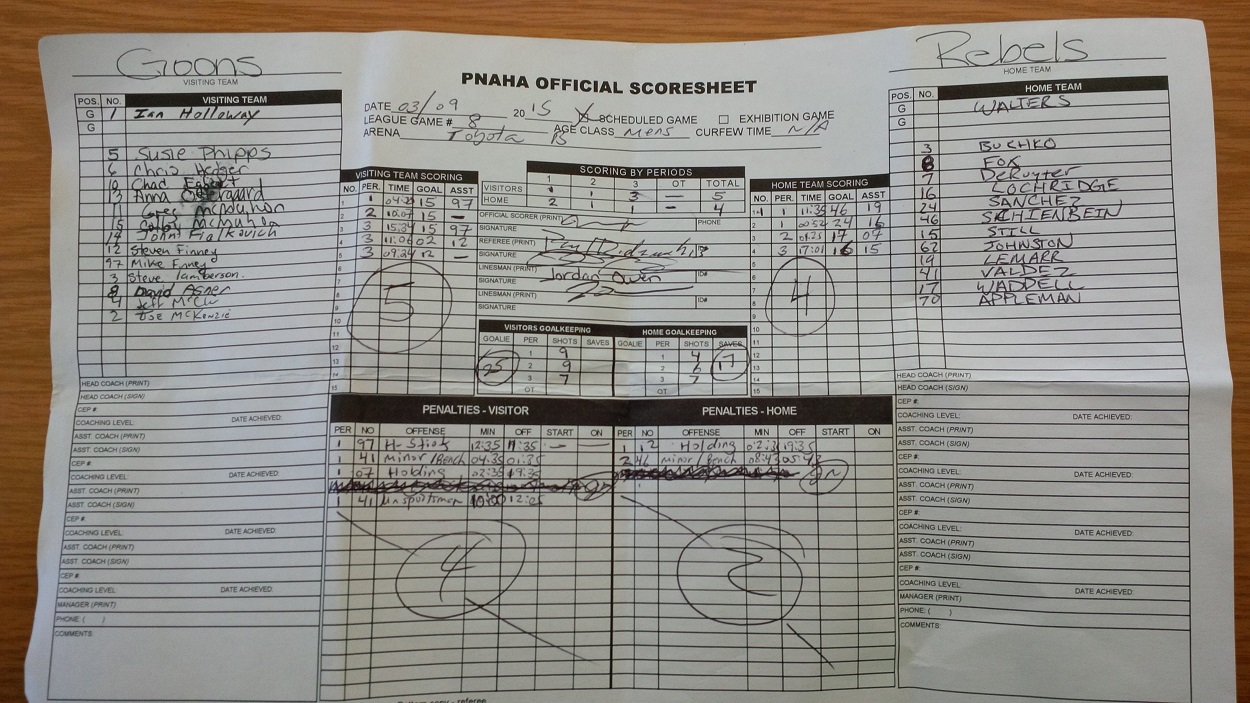 Goons
VISITING TEAM
Rebels
HOME TEAM
PNAHA OFFICIAL SCORESHEET
DATE 03/09 2015 X SCHEDULED GAME □ EXHIBITION GAME
LEAGUE GAME # 8 AGE CLASS Mens CURFEW TIME N/A
ARENA Toyota B
POS. NO. VISITING TEAM
G 1 Ian Holloway
G
5 Susie Phipps
6 Chris Hedger
10 Chad
13 Anna
11 Greg McMahon
15 McMahon
14 John Fialkovich
12 Steven Finney
97 Mike Finney
3 Steve Tamberson.
8 David Asher
4 Jeff
2 Joe McKenzie
HEAD COACH (PRINT)
HEAD COACH (SIGN)
CEP #:
COACHING LEVEL: DATE ACHIEVED:
ASST. COACH (PRINT)
ASST. COACH (SIGN)
CEP #:
COACHING LEVEL: DATE ACHIEVED:
ASST. COACH (PRINT)
ASST. COACH (SIGN)
CEP #:
COACHING LEVEL: DATE ACHIEVED:
ASST. COACH (PRINT)
ASST. COACH (SIGN)
CEP #:
COACHING LEVEL: DATE ACHIEVED:
MANAGER (PRINT)
PHONE: ( )
COMMENTS:
VISITING TEAM SCORING
NO. PER. TIME GOAL ASST
1 1 04:29 15 97
2 2 10:07 15 —
3 3 15:34 15 97
4 3 11:06 02 12
5 3 09:24 12 —
6
7
8
9
10
11
12
13
14
15
5
SCORING BY PERIODS
1 2 3 OT TOTAL
VISITORS 1 1 3 — 5
HOME 2 1 1 — 4
OFFICIAL SCORER (PRINT) PHONE
SIGNATURE
REFEREE (PRINT) ID#
SIGNATURE
LINESMAN (PRINT) Jordan Owen ID#
SIGNATURE
LINESMAN (PRINT) ID#
SIGNATURE
VISITORS GOALKEEPING
GOALIE PER SHOTS SAVES
1 9
2 9
3 7
OT
25
HOME GOALKEEPING
GOALIE PER SHOTS SAVES
1 4
2 6
3 7
OT
17
HOME TEAM SCORING
NO. PER. TIME GOAL ASST
1 1 11:35 46 19
2 1 00:52 24 16
3 2 04:25 17 07
4 3 17:01 16 15
5
6
7
8
9
10
11
12
13
14
15
4
PENALTIES - VISITOR
PER NO OFFENSE MIN OFF START ON
1 97 H-Stick 12:35 11:35 — —
1 41 minor/Bench 04:35 01:35
1 07 Holding 02:35 19:36
1 41 unsportsman 10:00 12:05
4
PENALTIES - HOME
PER NO OFFENSE MIN OFF START ON
1 12 Holding 02:36 19:35
2 46 minor/Bench 08:43 05:43
2
POS. NO. HOME TEAM
G WALTERS
G
3 BUCHKO
8 FOX
7 DeRuyter
16 LOCHRIDGE
24 SANCHEZ
46 SCHIENBEIN
15 STILL
62 JOHNSTON
19 LEMARR
41 VALDEZ
17 WADDELL
70 APPLEMAN
HEAD COACH (PRINT)
HEAD COACH (SIGN)
CEP #:
COACHING LEVEL: DATE ACHIEVED:
ASST. COACH (PRINT)
ASST. COACH (SIGN)
CEP #:
COACHING LEVEL: DATE ACHIEVED:
ASST. COACH (PRINT)
ASST. COACH (SIGN)
CEP #:
COACHING LEVEL: DATE ACHIEVED:
ASST. COACH (PRINT)
ASST. COACH (SIGN)
CEP #:
COACHING LEVEL: DATE ACHIEVED:
MANAGER (PRINT)
PHONE: ( )
COMMENTS:
copy - referee